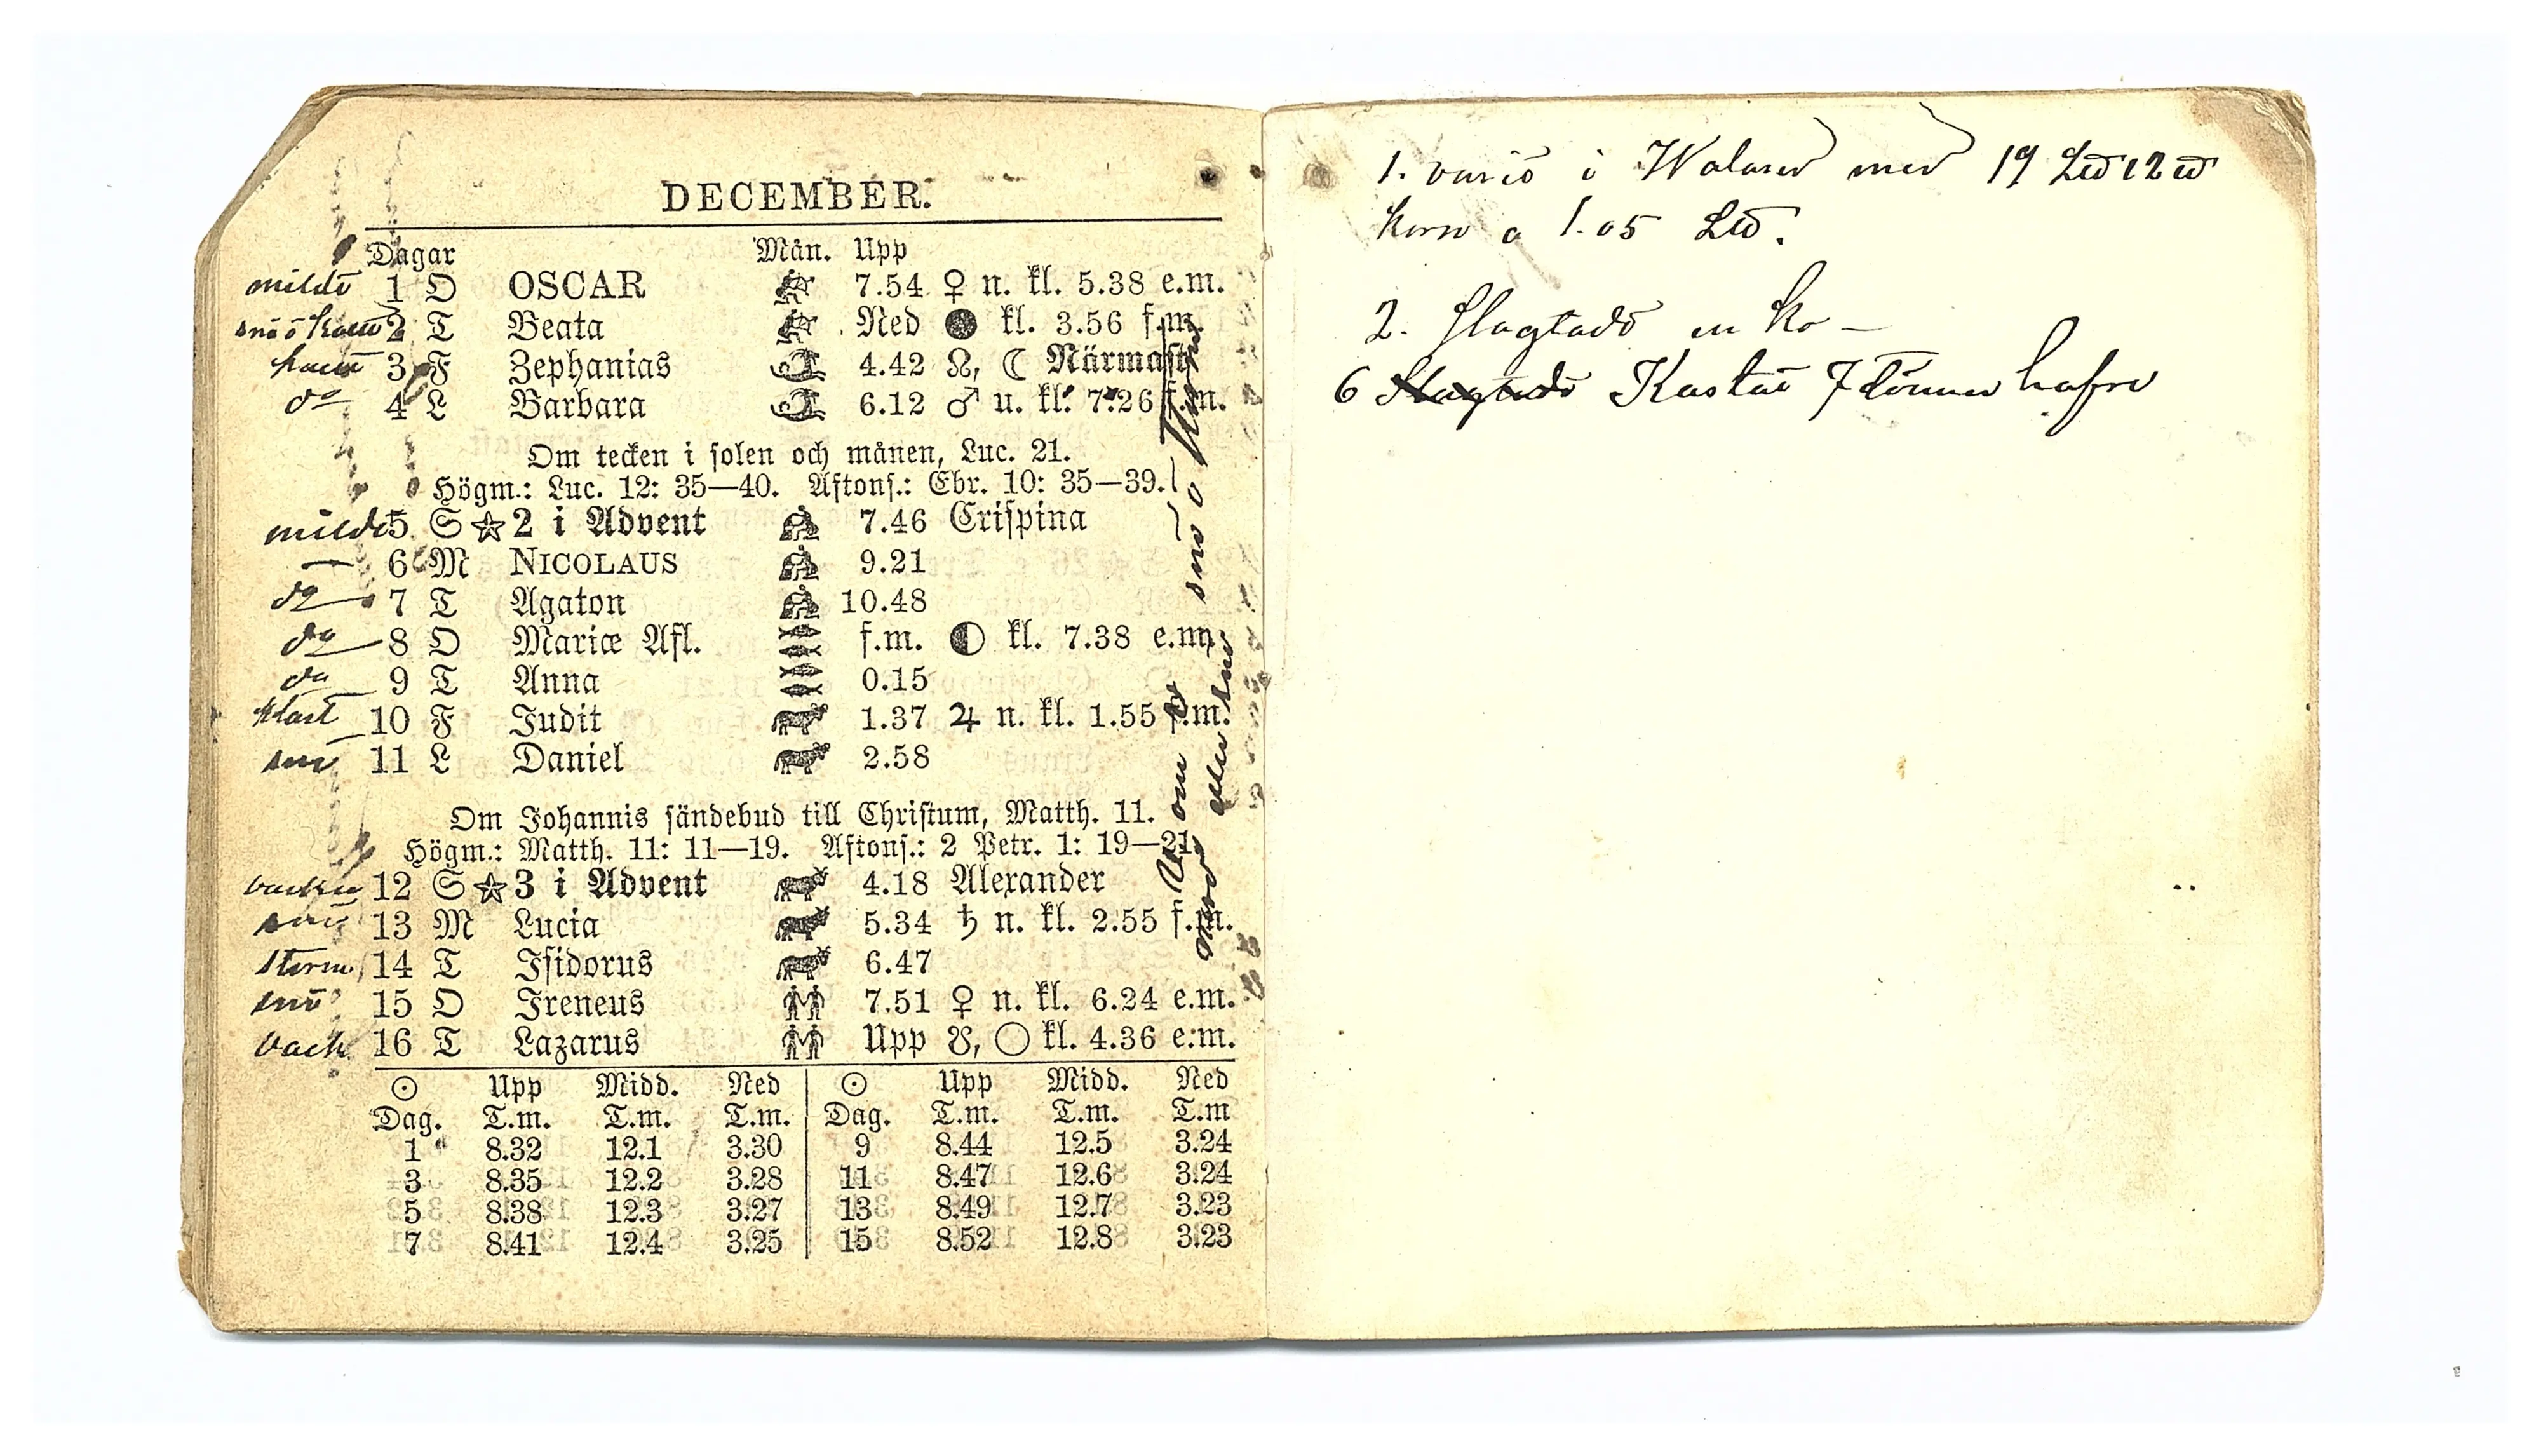 DECEMBER.
Dagar Mån. Upp
mildt 1 O OSCAR 7.54 ♀ n. kl. 5.38 e.m.
snö o 2 T Beata Ned ● kl. 3.56 f.m.
3 F Zephanias 4.42 ☊, ☾ Närmast
do 4 L Barbara 6.12 ♂ u. kl. 7.26 f.m.
Om tecken i solen och månen, Luc. 21.
Högm.: Luc. 12: 35—40. Aftons.: Ebr. 10: 35—39.
mildt 5 S ☆ 2 i Advent 7.46 Crispina
— 6 M NICOLAUS 9.21
do 7 T Agaton 10.48
do 8 O Mariæ Afl. f.m. ◐ kl. 7.38 e.m.
do 9 T Anna 0.15
klart 10 F Judit 1.37 ♃ n. kl. 1.55 f.m.
snö 11 L Daniel 2.58
Om Johannis sändebud till Christum, Matth. 11.
Högm.: Matth. 11: 11—19. Aftons.: 2 Petr. 1: 19—21.
vackert 12 S ☆ 3 i Advent 4.18 Alexander
snö 13 M Lucia 5.34 ♄ n. kl. 2.55 f.m.
storm 14 T Isidorus 6.47
snö 15 O Ireneus 7.51 ♀ n. kl. 6.24 e.m.
vack 16 T Lazarus Upp ☋, ○ kl. 4.36 e.m.
☉ Upp Midd. Ned ☉ Upp Midd. Ned
Dag. T.m. T.m. T.m. Dag. T.m. T.m. T.m
1 8.32 12.1 3.30 9 8.44 12.5 3.24
3 8.35 12.2 3.28 11 8.47 12.6 3.24
5 8.38 12.3 3.27 13 8.49 12.7 3.23
7 8.41 12.4 3.25 15 8.52 12.8 3.23
snö o
1. varit i med 19 L℔ 12 ℔
korn a 1.05 L℔.
2. Slagtade en Ko —
6 Slagtade Kastat 7 tönnor hafre